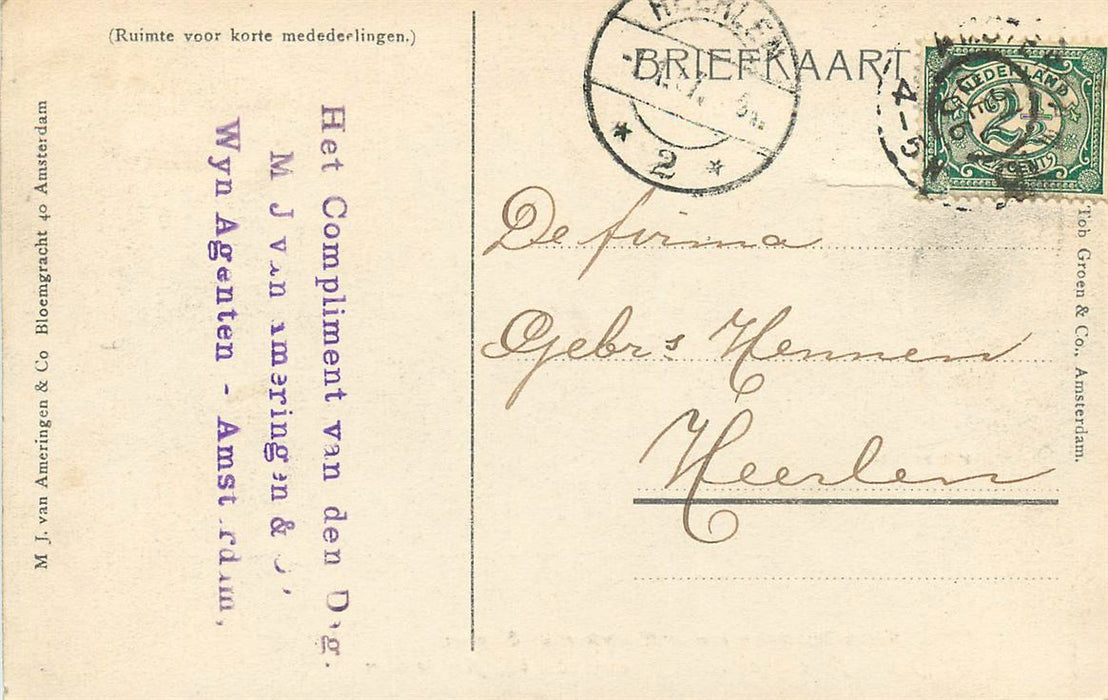 (Ruimte voor korte mededeelingen.)
M J. van Ameringen & Co Bloemgracht 40 Amsterdam
Het Compliment van den Dag.
M J van Ameringen &
Wyn Agenten - Amsterdam,
BRIEFKAART
HEERLEN
2
NEDERLAND
2½
CENT
4-5
De firma
Gebrs Hennen
Heerlen
Tob Groen & Co., Amsterdam.